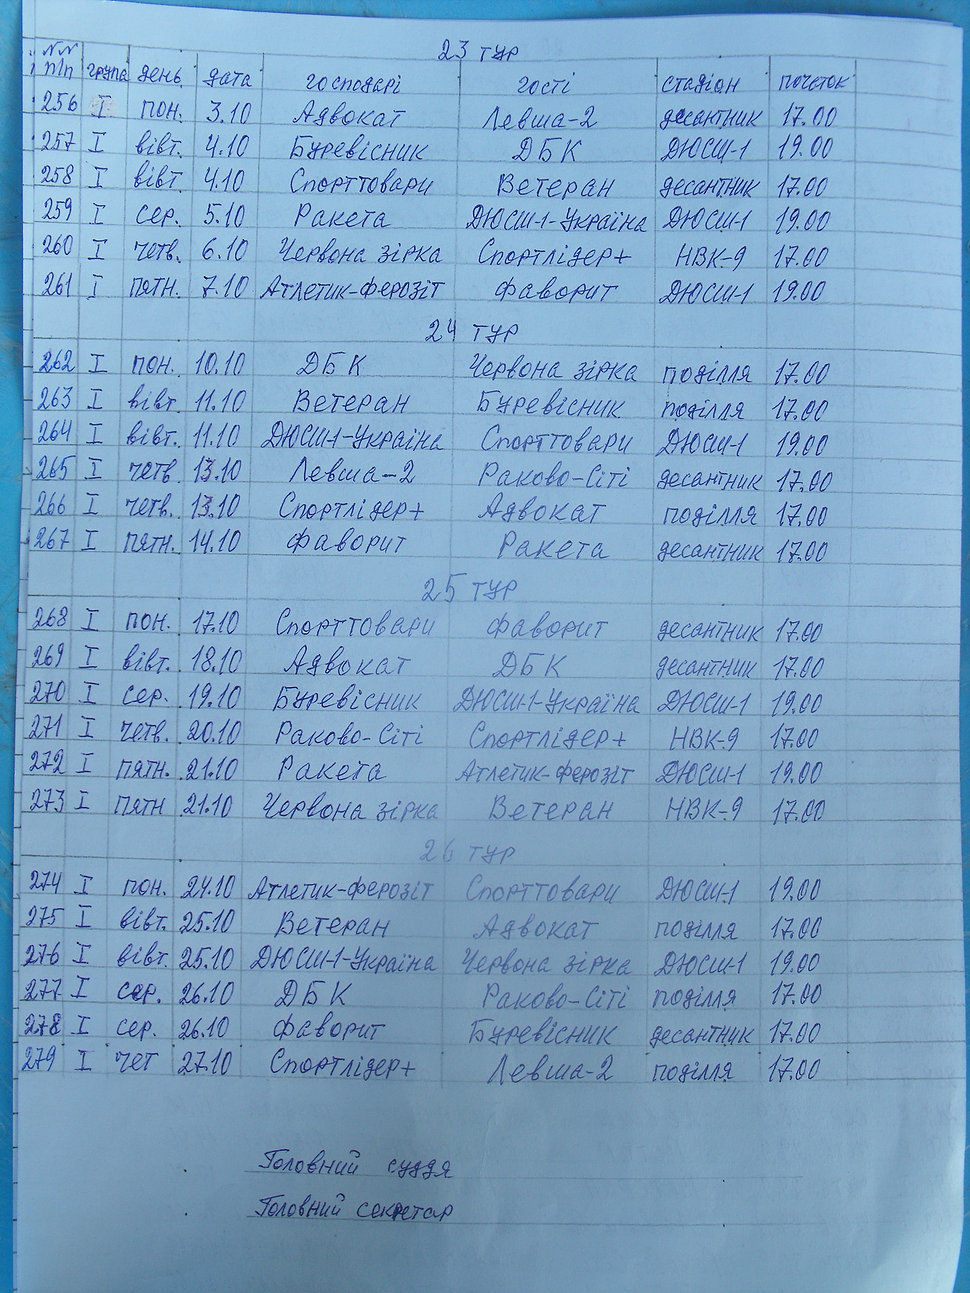 23 тур
NN п/п група день дата господарі гості стадіон початок
256 I пон. 3.10 Адвокат Левша-2 десантник 17.00
257 I вівт. 4.10 Буревісник ДБК ДЮСШ-1 19.00
258 I вівт. 4.10 Спорттовари Ветеран десантник 17.00
259 I сер. 5.10 Ракета ДЮСШ-1-Україна ДЮСШ-1 19.00
260 I четв. 6.10 Червона зірка Спортлідер+ НВК-9 17.00
261 I пятн. 7.10 Атлетик-ферозіт Фаворит ДЮСШ-1 19.00
24 тур
262 I пон. 10.10 ДБК Червона зірка поділля 17.00
263 I вівт. 11.10 Ветеран Буревісник поділля 17.00
264 I вівт. 11.10 ДЮСШ-1-Україна Спорттовари ДЮСШ-1 19.00
265 I четв. 13.10 Левша-2 Раково-Сіті десантник 17.00
266 I четв. 13.10 Спортлідер+ Адвокат поділля 17.00
267 I пятн. 14.10 Фаворит Ракета десантник 17.00
25 тур
268 I пон. 17.10 Спорттовари Фаворит десантник 17.00
269 I вівт. 18.10 Адвокат ДБК десантник 17.00
270 I сер. 19.10 Буревісник ДЮСШ-1-Україна ДЮСШ-1 19.00
271 I четв. 20.10 Раково-Сіті Спортлідер+ НВК-9 17.00
272 I пятн. 21.10 Ракета Атлетик-ферозіт ДЮСШ-1 19.00
273 I пятн 21.10 Червона зірка Ветеран НВК-9 17.00
26 тур
274 I пон. 24.10 Атлетик-ферозіт Спорттовари ДЮСШ-1 19.00
275 I вівт. 25.10 Ветеран Адвокат поділля 17.00
276 I вівт. 25.10 ДЮСШ-1-Україна Червона зірка ДЮСШ-1 19.00
277 I сер. 26.10 ДБК Раково-Сіті поділля 17.00
278 I сер. 26.10 Фаворит Буревісник десантник 17.00
279 I чет 27.10 Спортлідер+ Левша-2 поділля 17.00
Головний суддя
Головний секретар